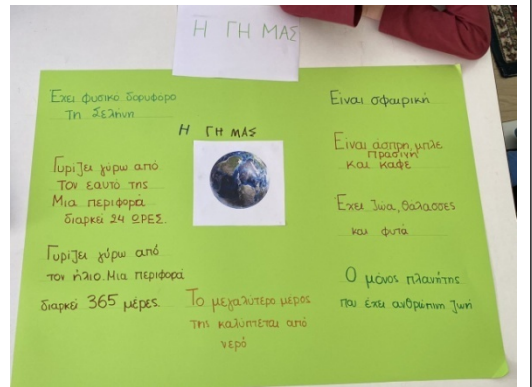 Η ΓΗ ΜΑΣ
Έχει φυσικό δορυφόρο
τη Σελήνη
Η ΓΗ ΜΑΣ
Γυρίζει γύρω από
τον εαυτό της
Μια περιφορά
διαρκεί 24 ΩΡΕΣ.
Γυρίζει γύρω από
τον ήλιο. Μια περιφορά
διαρκεί 365 μέρες.
Το μεγαλύτερο μέρος
της καλύπτεται από
νερό
Είναι σφαιρική
Είναι άσπρη, μπλε
πράσινη
και καφέ
Έχει ζώα, θάλασσες
και φυτά
Ο μόνος πλανήτης
που έχει ανθρώπινη ζωή